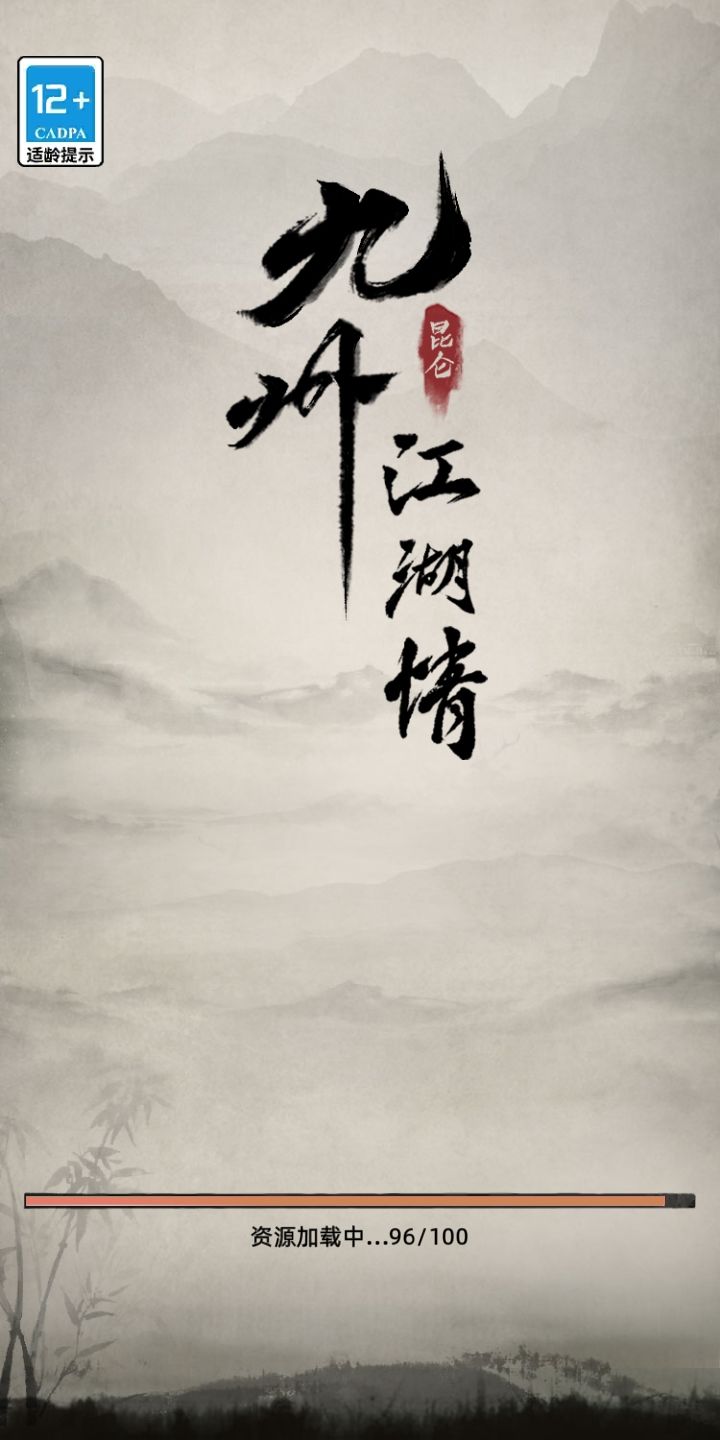 12+
CADPA
适龄提示
九州
昆仑
江湖情
资源加载中...96/100